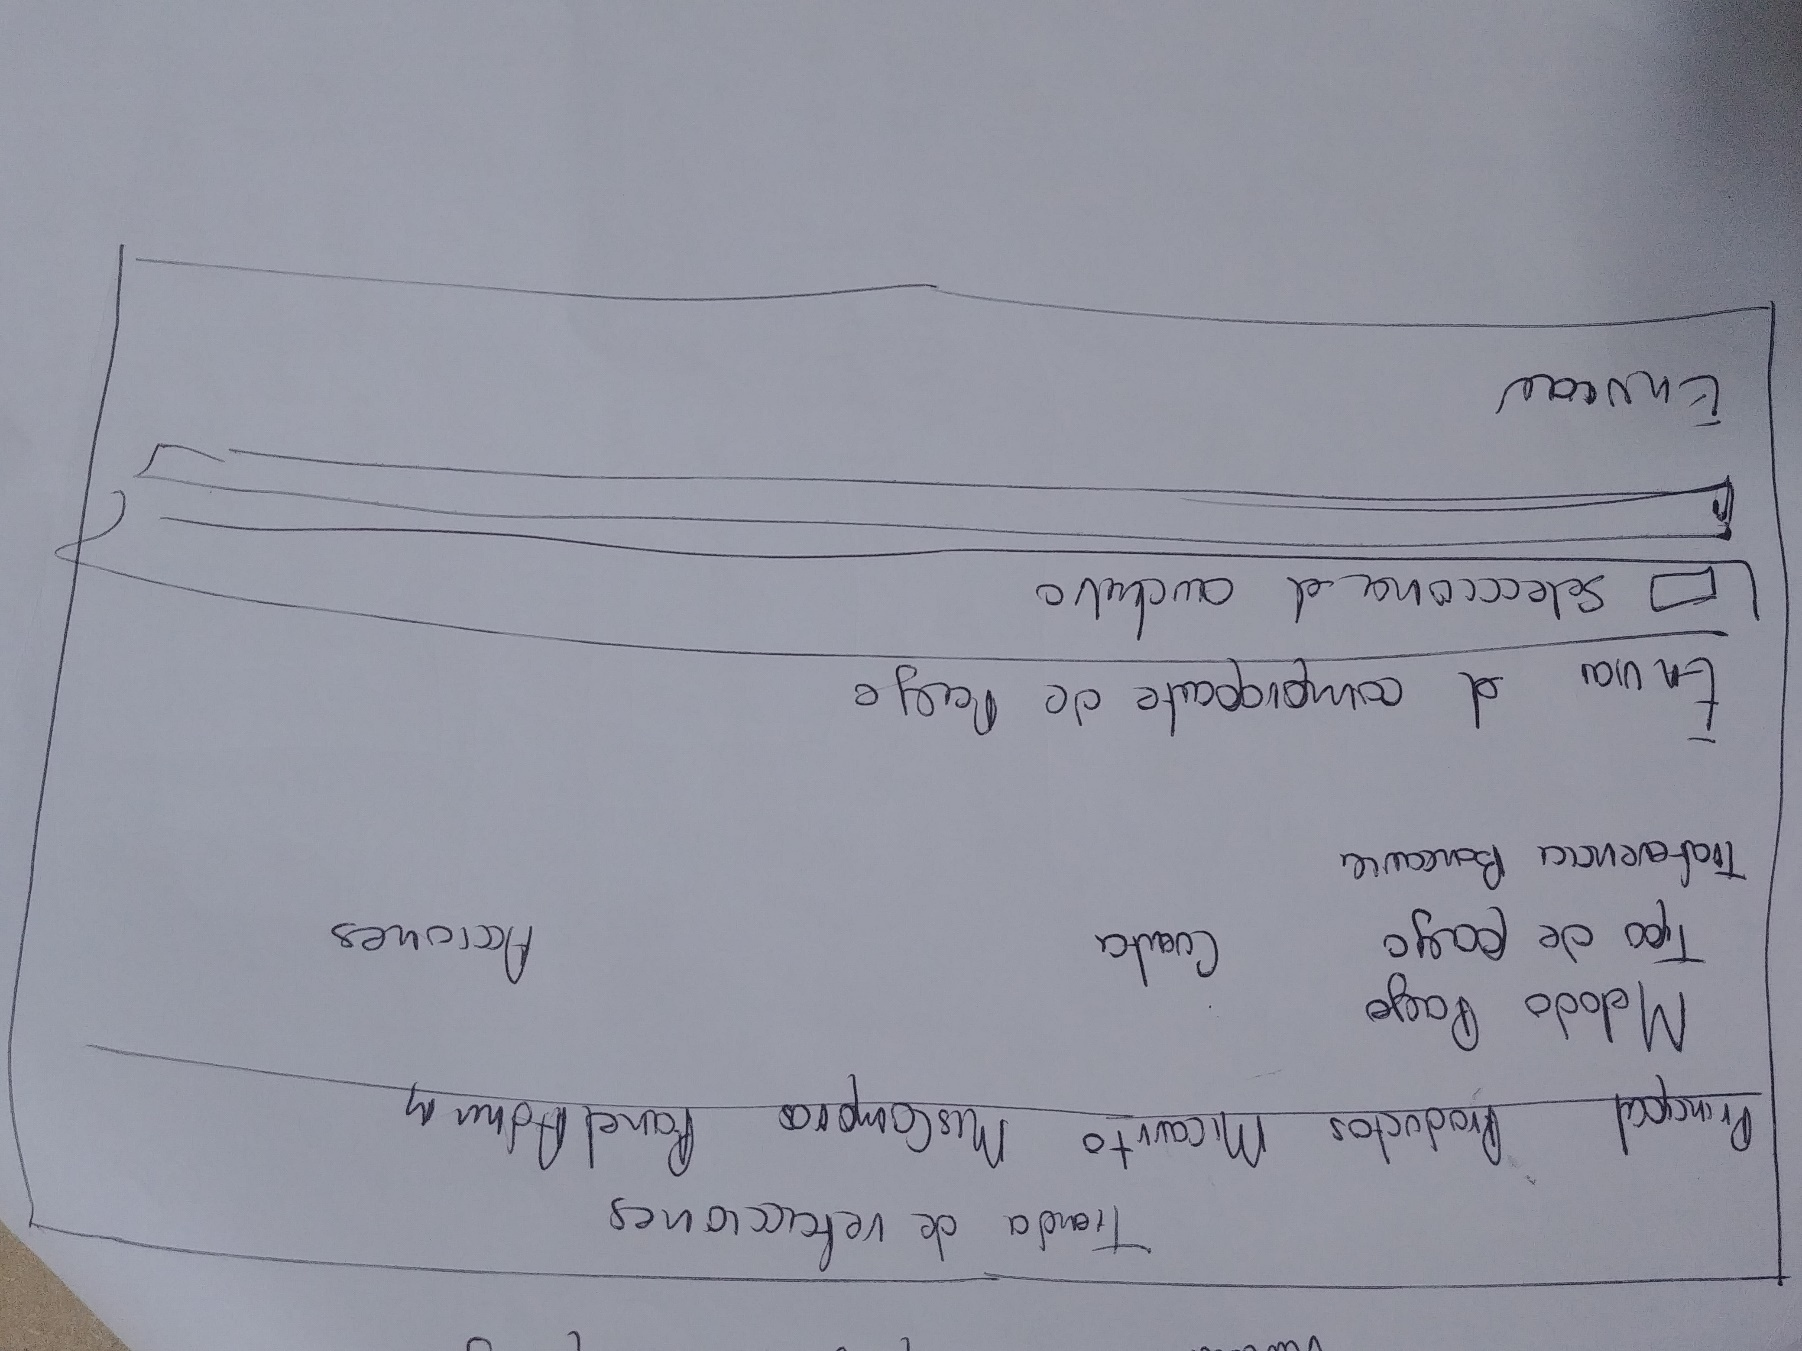 Tienda de refacciones
Principal Productos Micarrito MisCompras Panel Admin
Metodo Pago
Tipo de pago Cuenta Acciones
Trasferencia Bancaria
Enviar el comprobante de Pago
Selecciona el archivo
Enviar